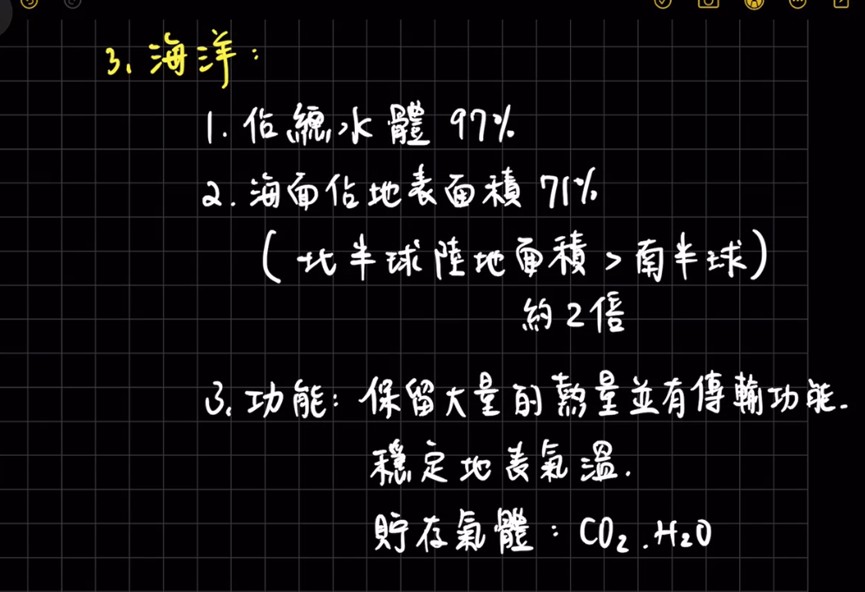 3. 海洋:
1. 佔總水體 97%
2. 海面佔地表面積 71%
(北半球陸地面積 > 南半球)
約2倍
3. 功能: 保留大量的熱量並有傳輸功能.
穩定地表氣溫.
貯存氣體: CO₂.H₂O